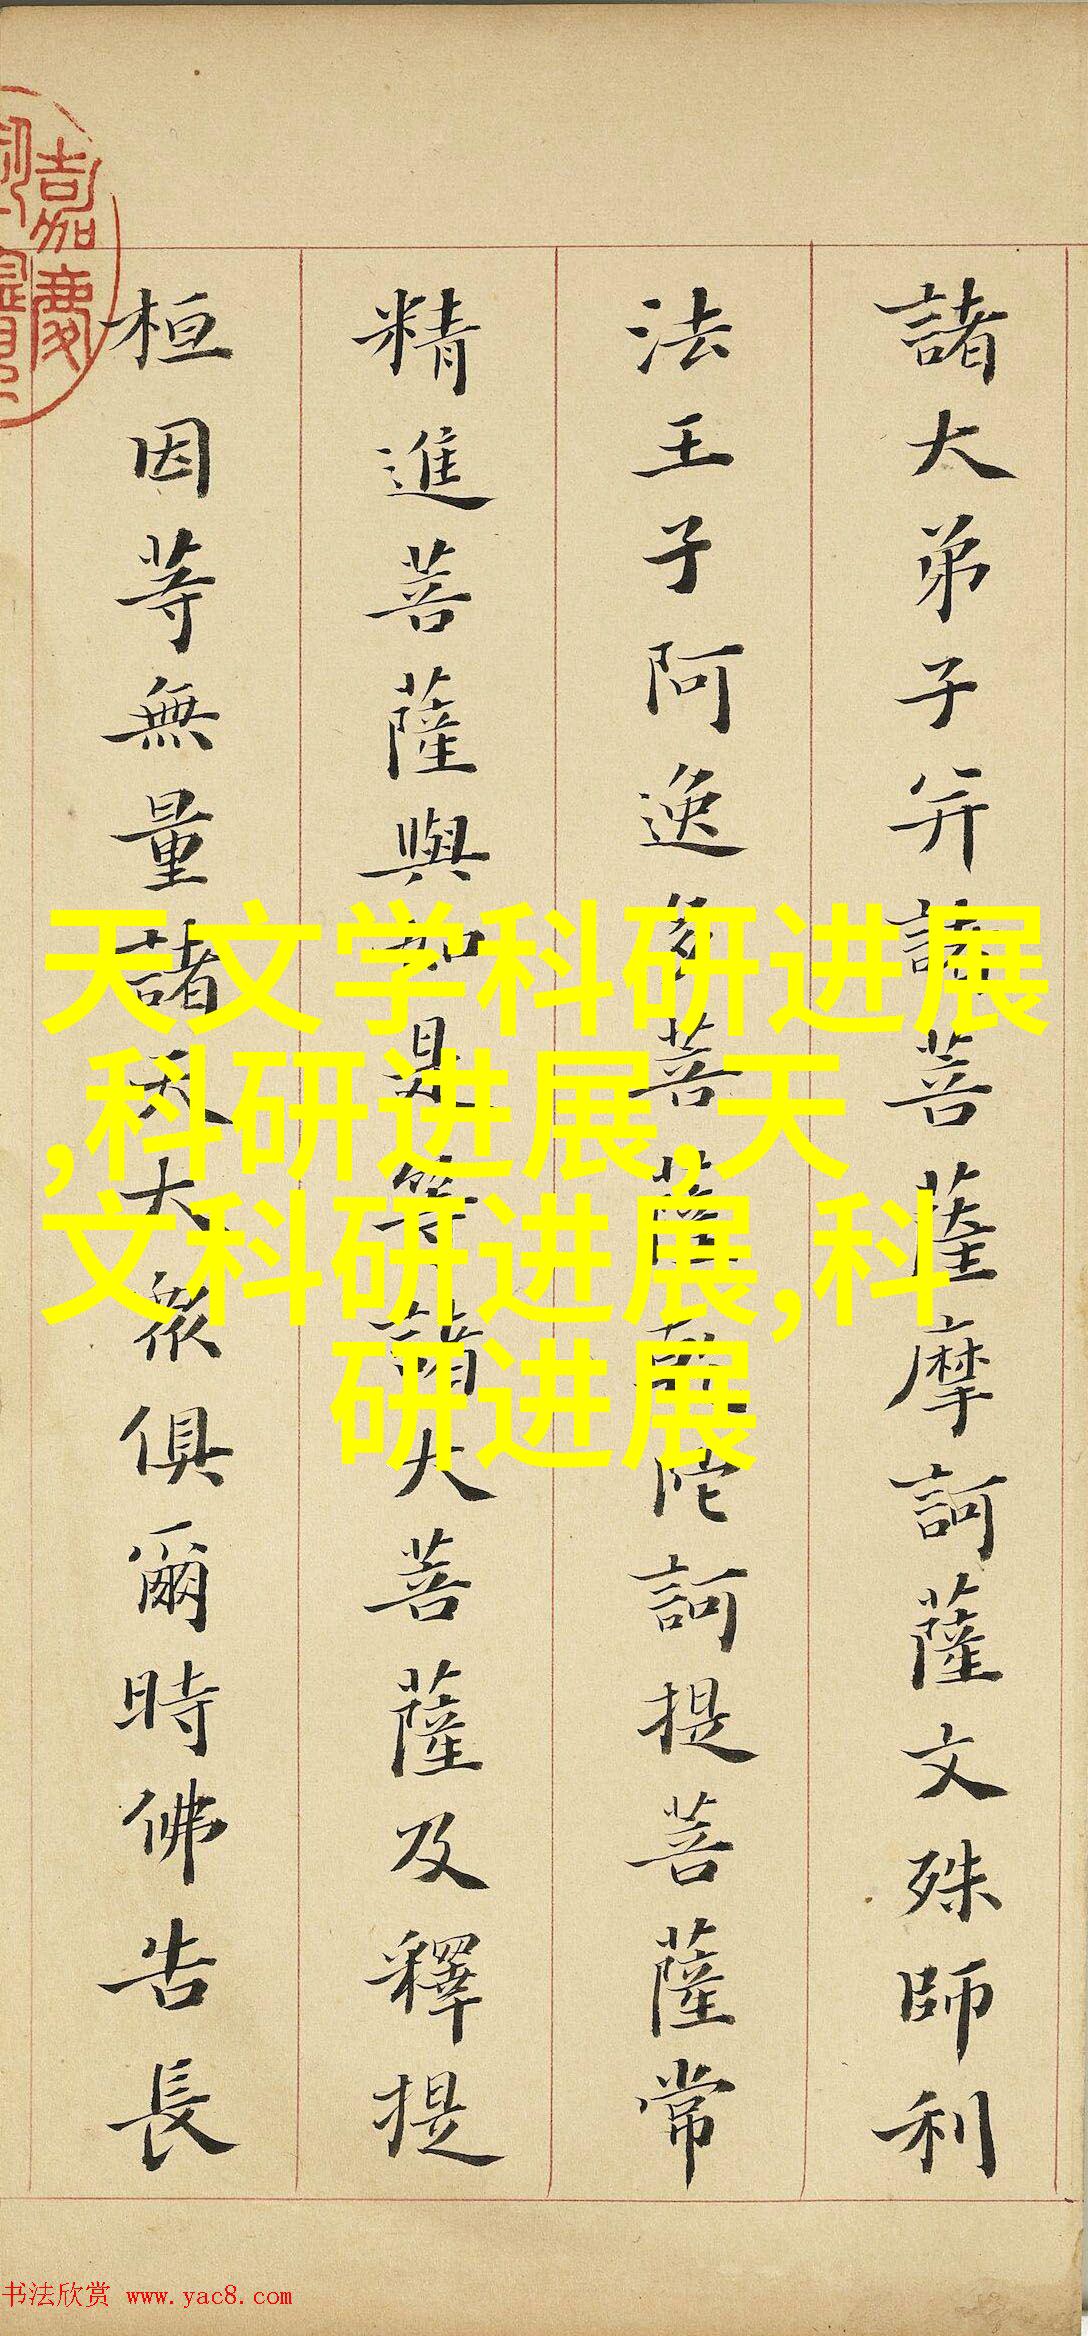 諸大弟子并諸菩薩摩訶薩文殊師利
法王子阿逸多菩薩乾陀訶提菩薩常
精進菩薩與如是等諸大菩薩及釋提
桓因等無量諸天大衆俱爾時佛告長
嘉慶
天文学科研进展
,科研进展,天
文科研进展,科
研进展
书法欣赏 www.yac8.com